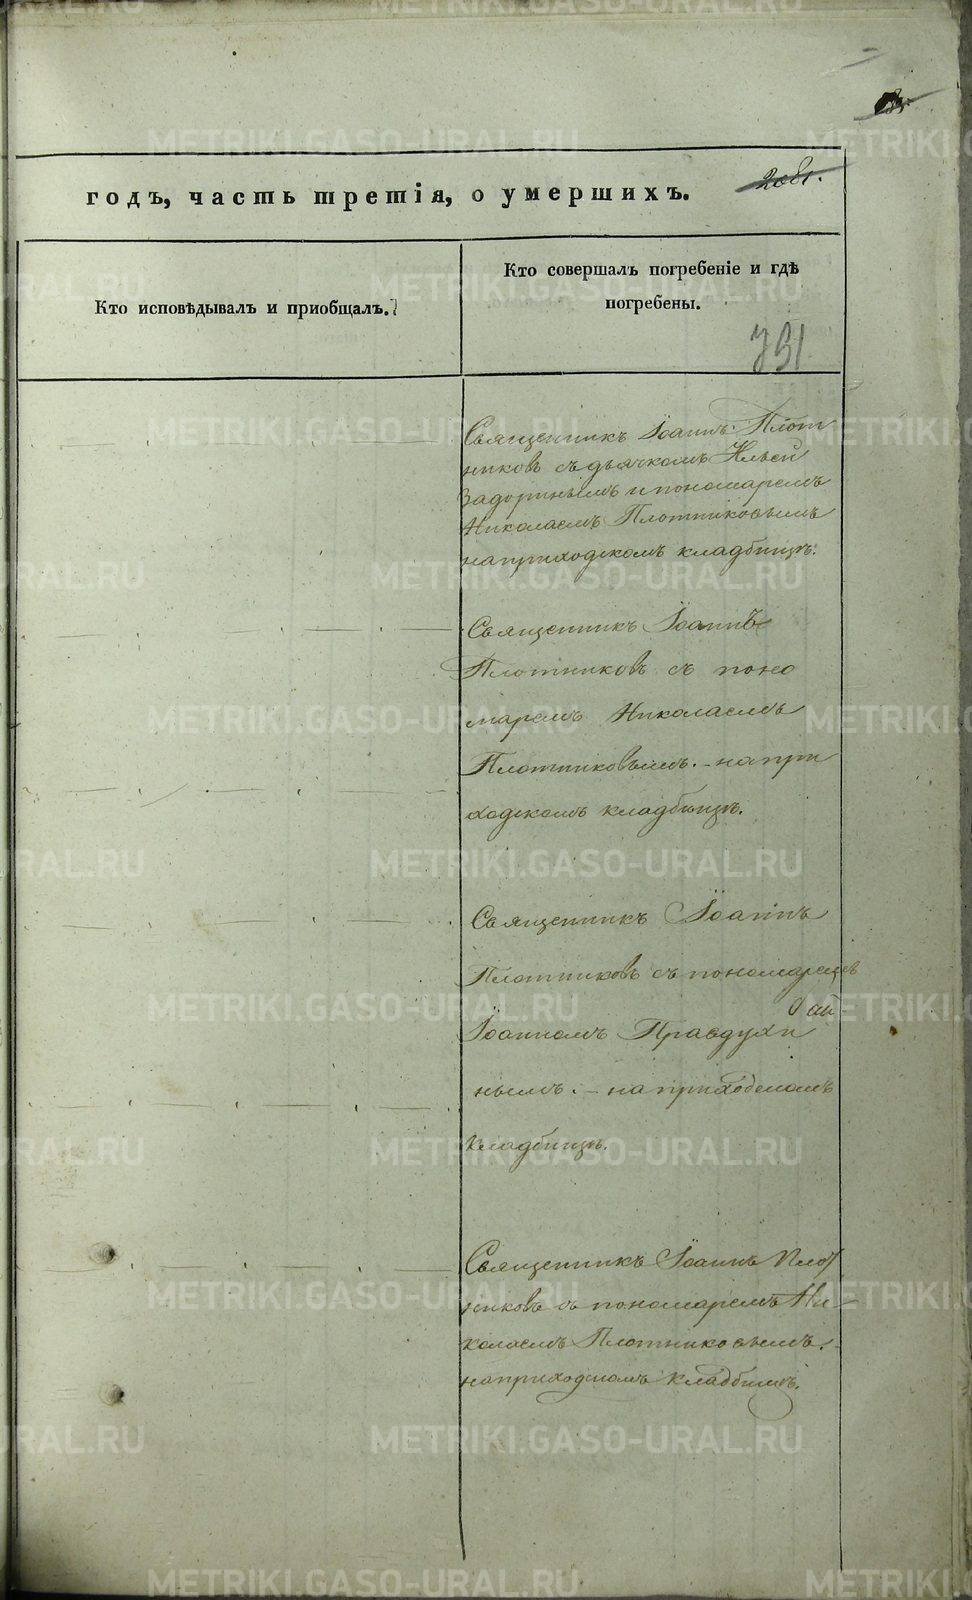 годъ, часть третія, о умершихъ.
Кто исповѣдывалъ и приобщалъ.
Кто совершалъ погребеніе и гдѣ
погребены.
791
Священникъ Іоаннъ Плот
никовъ съ дьячкомъ Ильей
Задоринымъ и пономаремъ
Николаемъ Плотниковымъ
на приходскомъ кладбищѣ.
Священникъ Іоаннъ
Плотниковъ съ поно
маремъ Николаемъ
Плотниковымъ. - на при
ходскомъ кладбищѣ.
Священникъ Іоаннъ
Плотниковъ съ пономаремъ
Іоанномъ Правдухи
нымъ. - на приходскомъ
кладбищѣ.
Священникъ Іоаннъ Плот
никовъ съ пономаремъ Ни
колаемъ Плотниковымъ.
на приходскомъ кладбищѣ.
METRIKI.GASO-URAL.RU